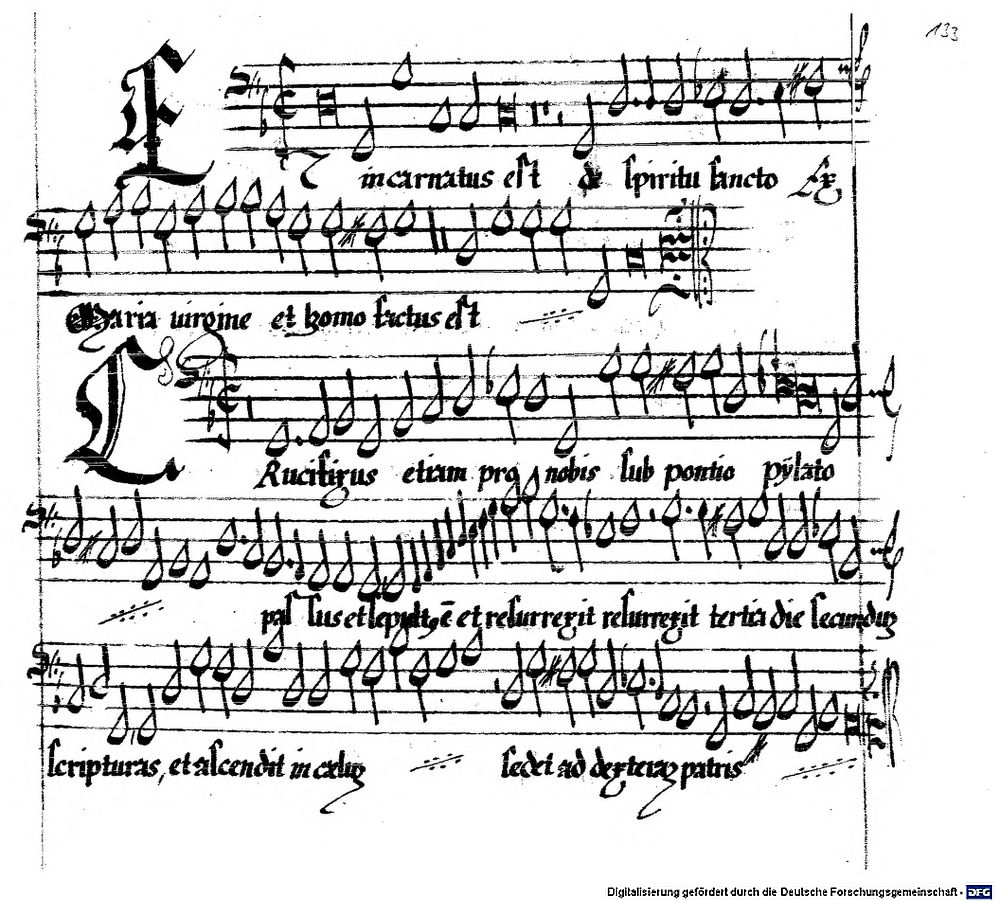 133
Et incarnatus est de spiritu sancto Ex
Maria uirgine et homo factus est
CRucifixus etiam pro nobis sub pontio pÿlato
pas sus et sepult9 ē et resurrexit resurrexit tertia die secundum
scripturas, et ascendit in cælum sedet ad dexteram patris
Digitalisierung gefördert durch die Deutsche Forschungsgemeinschaft - DFG